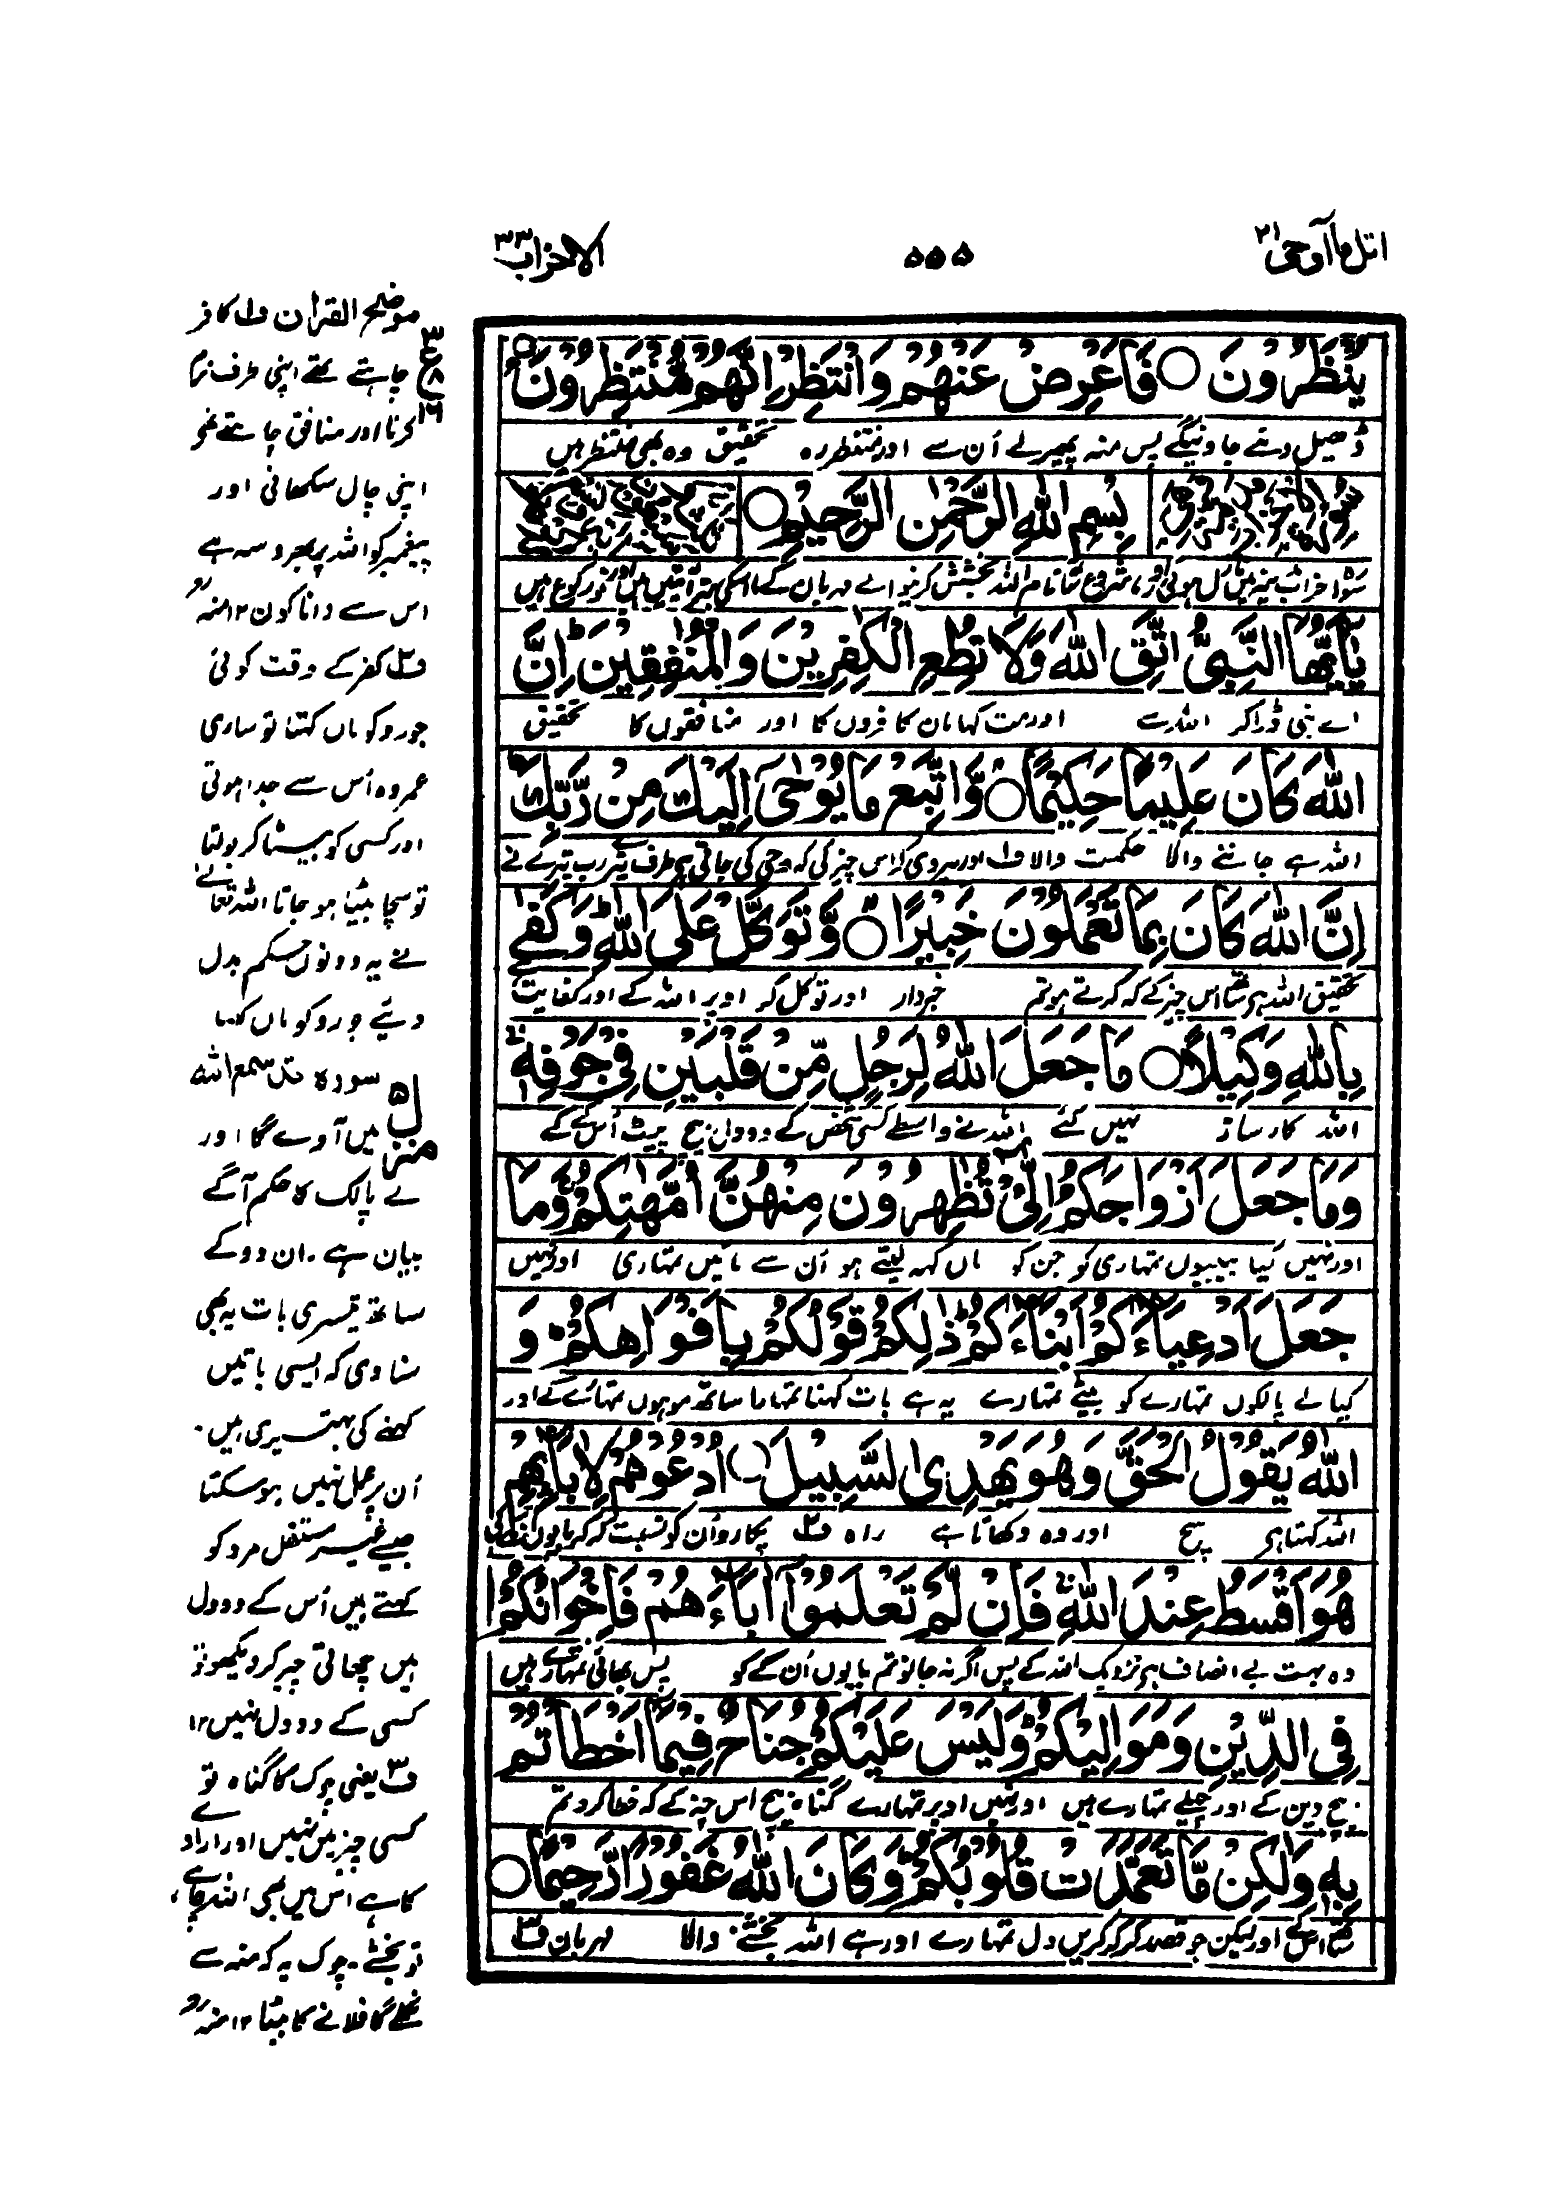 اتل ما اوحی ۲۱
۵۵۵
الاحزاب ۳۳
يُنْظَرُوْنَ ○ فَاَعْرِضْ عَنْهُمْ وَانْتَظِرْ اِنَّهُمْ مُّنْتَظِرُوْنَ ○
ڈھیل دئے جاوینگے پس منہ پھیر لے اُن سے اور منتظر رہ تحقیق وہ بھی منتظر ہیں
بِسْمِ اللّٰهِ الرَّحْمٰنِ الرَّحِيْمِ ○
يٰۤاَيُّهَا النَّبِيُّ اتَّقِ اللّٰهَ وَلَا تُطِعِ الْكٰفِرِيْنَ وَالْمُنٰفِقِيْنَ ؕ اِنَّ
اے نبی ڈرا کر اللہ سے اور مت کہا مان کافروں کا اور منافقوں کا تحقیق
اللّٰهَ كَانَ عَلِيْمًا حَكِيْمًا ○ وَّاتَّبِعْ مَا يُوْحٰۤى اِلَيْكَ مِنْ رَّبِّكَ ؕ
اللہ ہے جاننے والا حکمت والا ف۱ اور پیروی کر اس چیز کی کہ وحی کی جاتی ہے طرف تیرے رب تیرے نے
اِنَّ اللّٰهَ كَانَ بِمَا تَعْمَلُوْنَ خَبِيْرًا ○ وَّتَوَكَّلْ عَلَى اللّٰهِ ؕ وَكَفٰى
تحقیق اللہ ہے ساتھ اس چیز کے کہ کرتے ہو تم خبردار اور توکل کر اوپر اللہ کے اور کفایت
بِاللّٰهِ وَكِيْلًا ○ مَا جَعَلَ اللّٰهُ لِرَجُلٍ مِّنْ قَلْبَيْنِ فِيْ جَوْفِهٖ ۚ
اللہ کارساز نہیں کئے اللہ نے واسطے کسی شخص کے دو دل بیچ پیٹ اُس کے کے
وَمَا جَعَلَ اَزْوَاجَكُمُ الّٰٓـئِْ تُظٰهِرُوْنَ مِنْهُنَّ اُمَّهٰتِكُمْ ۚ وَمَا
اور نہیں کیا بیبیوں تمہاری کو جن کو ماں کہہ لیتے ہو اُن سے مائیں تمہاری اور نہیں
جَعَلَ اَدْعِيَآءَكُمْ اَبْنَآءَكُمْ ؕ ذٰلِكُمْ قَوْلُكُمْ بِاَفْوَاهِكُمْ ؕ وَ
کیا لے پالکوں تمہارے کو بیٹے تمہارے یہ ہے بات کہنا تمہارا ساتھ مونہوں تمہارے کے اور
اللّٰهُ يَقُوْلُ الْحَقَّ وَهُوَ يَهْدِى السَّبِيْلَ ○ اُدْعُوْهُمْ لِاٰبَآئِهِمْ
اللہ کہتا ہے سچ اور وہ دکھاتا ہے راہ ف۲ پکارو اُن کو نسبت کر کر باپوں
هُوَ اَقْسَطُ عِنْدَ اللّٰهِ ۚ فَاِنْ لَّمْ تَعْلَمُوْۤا اٰبَآءَهُمْ فَاِخْوَانُكُمْ
وہ بہت با انصاف ہے نزدیک اللہ کے پس اگر نہ جانو تم باپوں اُن کے کو پس بھائی تمہارے ہیں
فِى الدِّيْنِ وَمَوَالِيْكُمْ ؕ وَلَيْسَ عَلَيْكُمْ جُنَاحٌ فِيْمَاۤ اَخْطَاْتُمْ
بیچ دین کے اور چیلے تمہارے ہیں اور نہیں اوپر تمہارے گناہ بیچ اس چیز کے کہ خطا کرو تم
بِهٖ وَلٰكِنْ مَّا تَعَمَّدَتْ قُلُوْبُكُمْ ؕ وَكَانَ اللّٰهُ غَفُوْرًا رَّحِيْمًا ○
ساتھ اسکے اور لیکن جو قصد کر کر کریں دل تمہارے اور ہے اللہ بخشنے والا مہربان ف۳
موضح القران ف۱ کافر
چاہتے تھے اپنی طرف نرم
کرنا اور منافق چاہتے تھے
اپنی چال سکھانی اور
پیغمبر کو اللہ پر بھروسہ ہے
اس سے دانا کون ۱۲ منہ رح
ف۲ کفر کے وقت کوئی
جورو کو ماں کہتا تو ساری
عمر وہ اُس سے جدا ہوتی
اور کسی کو بیٹا کر بولتا
تو سچا بیٹا ہو جاتا اللہ تعالےٰ
نے یہ دونوں حکم بدل
دئیے جورو کو ماں کہنا
سورہ قد سمع اللہ
میں آوے گا اور
لے پالک کا حکم آگے
بیان ہے۔ ان دو کے
ساتھ تیسری بات یہ بھی
سنا دی کہ ایسی باتیں
کہنے کی بہتیری ہیں۔
اُن پر عمل نہیں ہو سکتا
جیسے غیر مستقل مرد کو
کہتے ہیں اُس کے دو دل
ہیں چھاتی چیر کر دیکھو تو
کسی کے دو دل نہیں ۱۲
ف۳ یعنی چوک کا گناہ تو
کسی چیز میں نہیں اور ارادے
کا ہے اس میں بھی اللہ چاہے
تو بخشے۔ چوک یہ کہ منہ سے
نکلے گا فلانے کا بیٹا ۱۲ منہ رح
منزل ۵